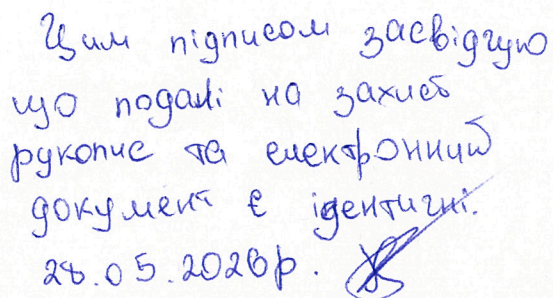 Цим підписом засвідчую
що подані на захист
рукопис та електронний
документ є ідентичні.
28.05.2026р.